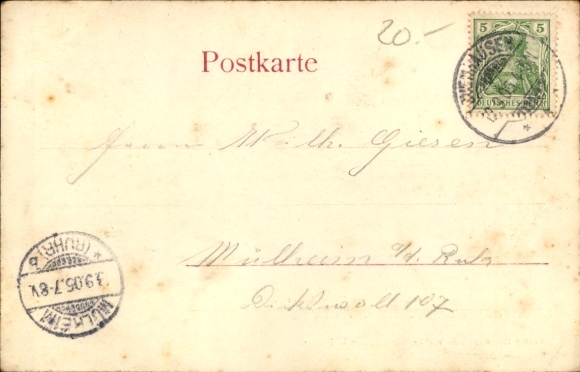 20.-
5 5
DEUTSCHES REICH
Postkarte
Herrn Wilh. Giesen
Mülheim a/d. Ruhr
Dickswall 107
MÜLHEIM
*(RUHR) b
3.9.05.7-8V.